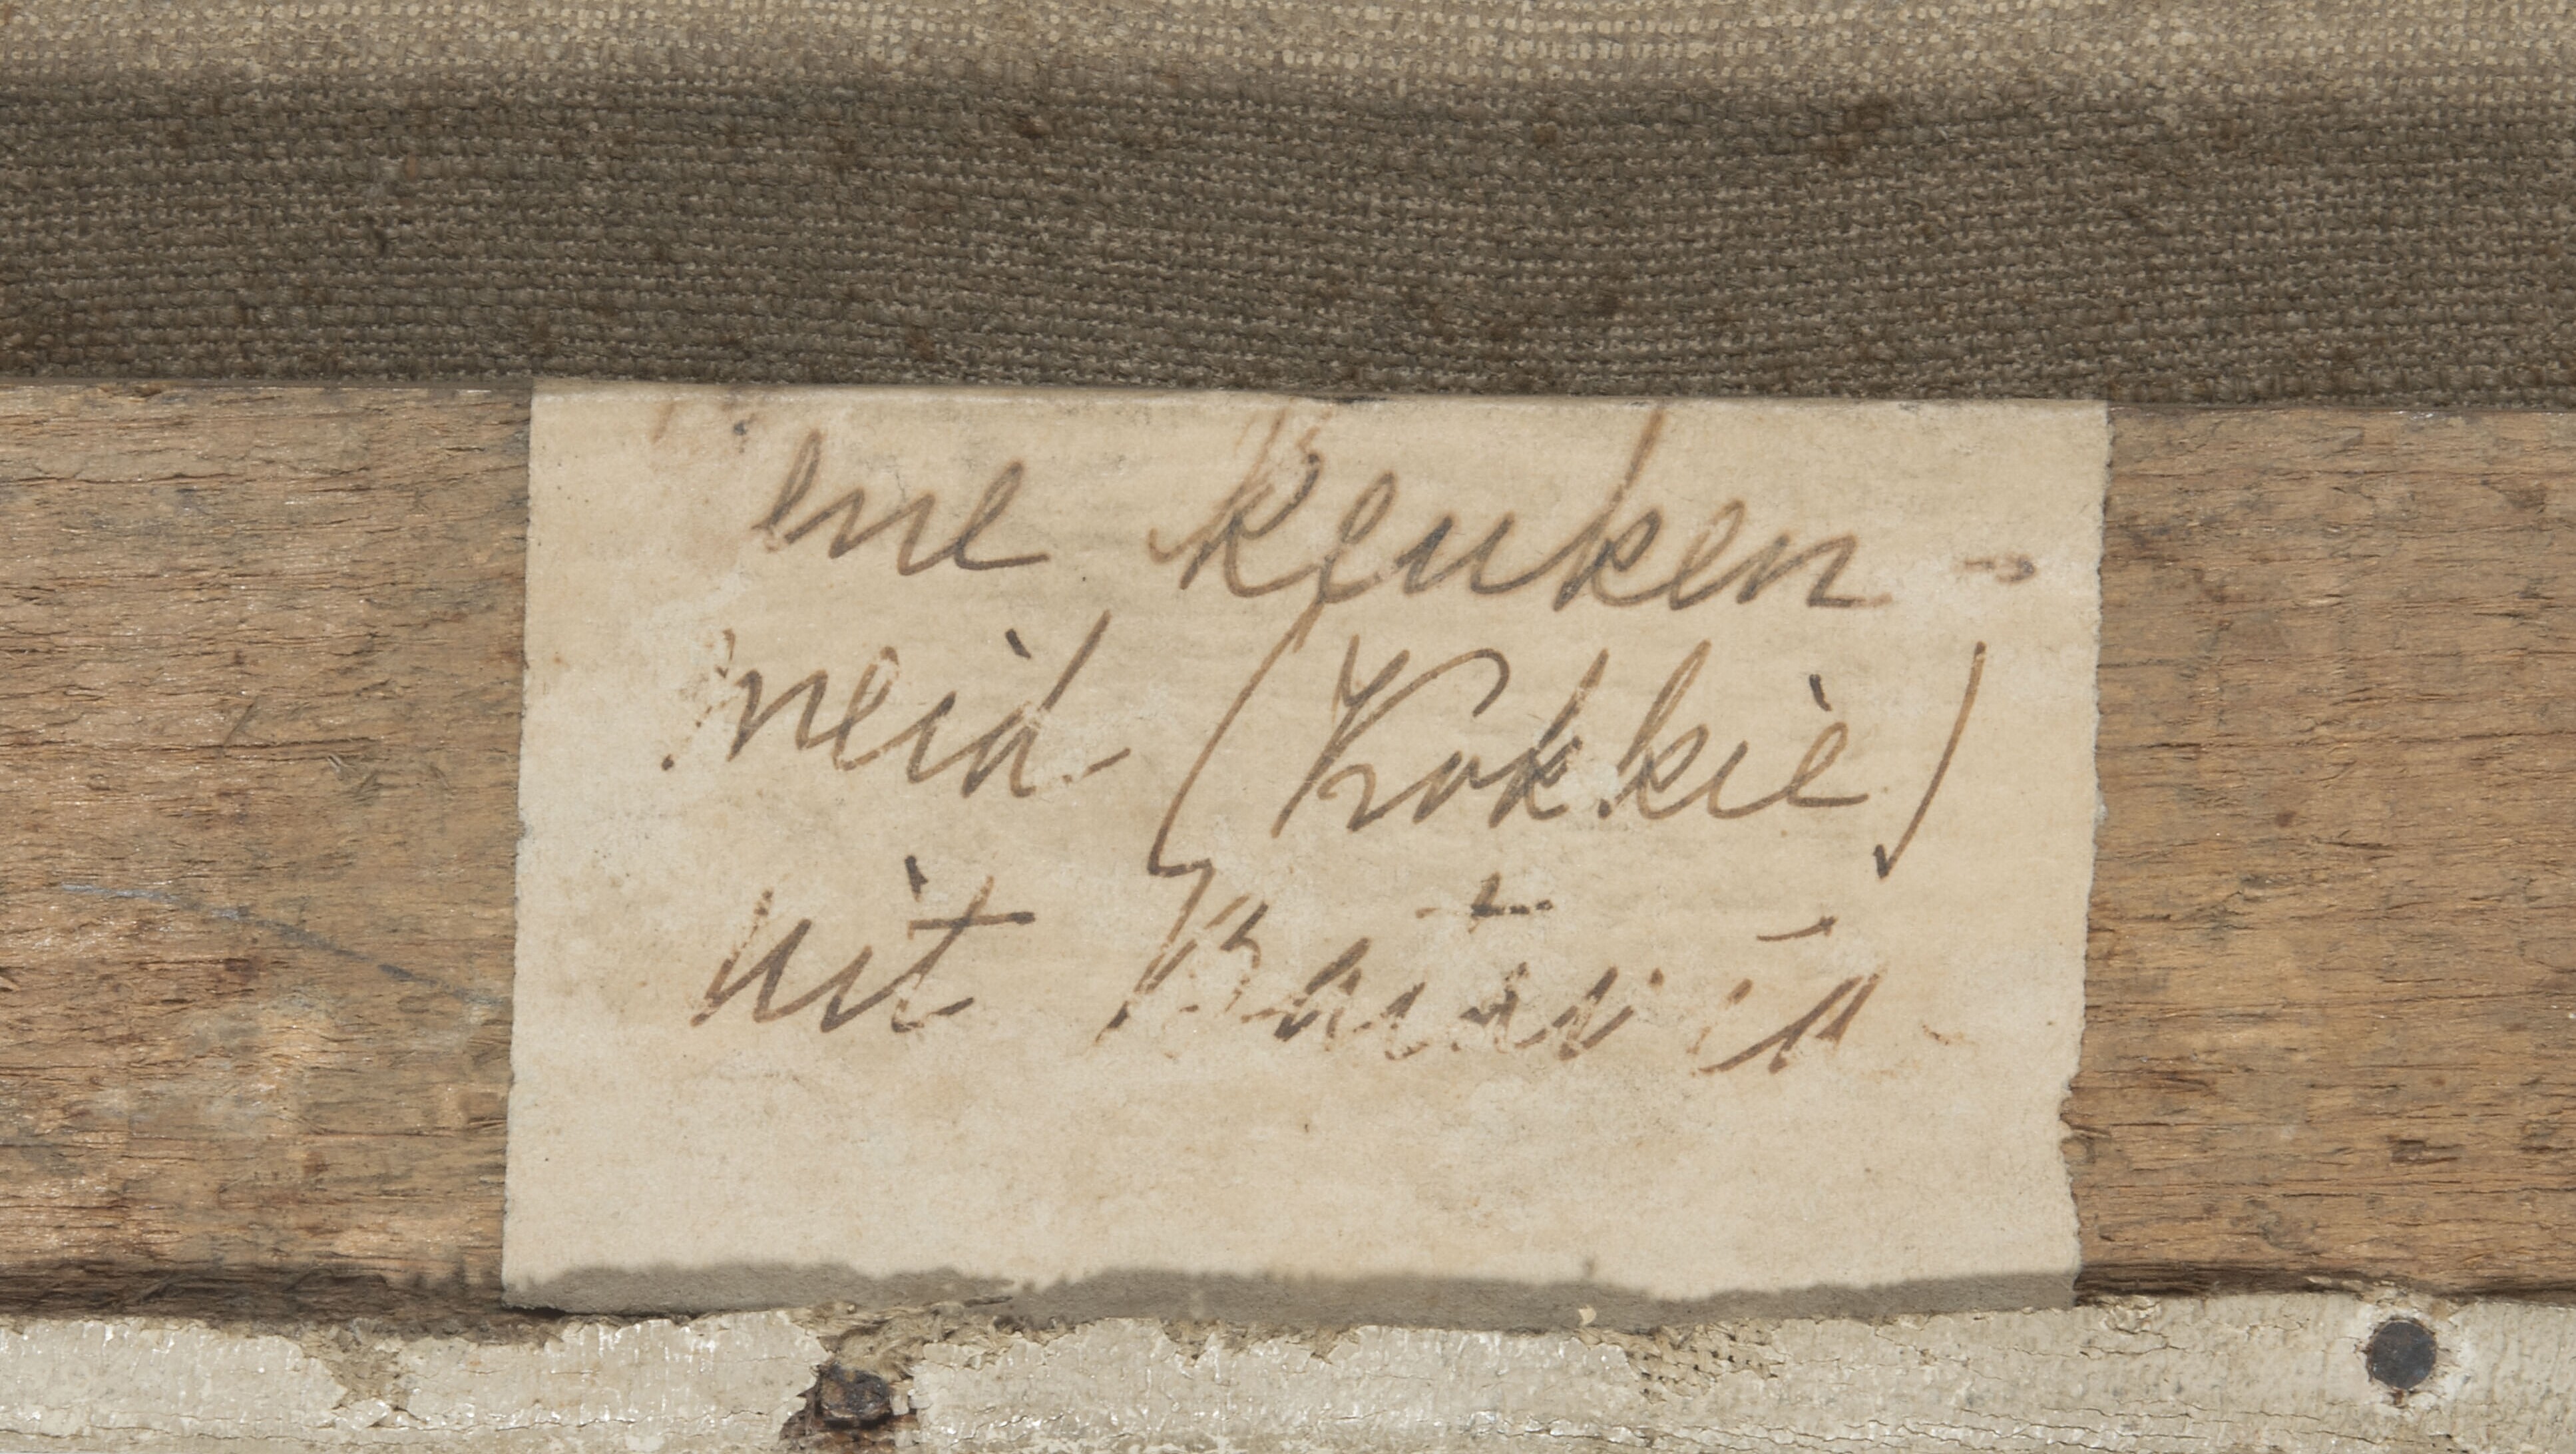 ene keuken-
meid (Kokkie)
uit Batavia